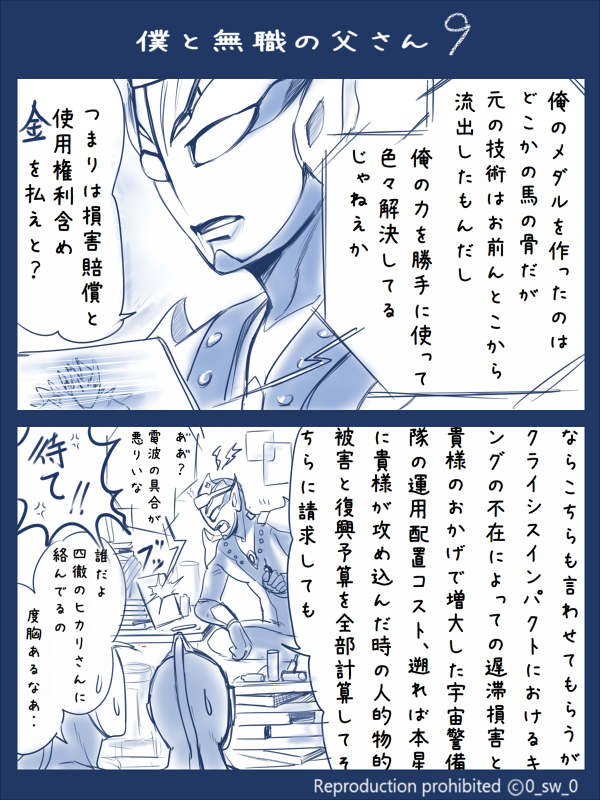 僕と無職の父さん 9
俺のメダルを作ったのは
どこかの馬の骨だが
元の技術はお前んとこから
流出したもんだし
俺の力を勝手に使って
色々解決してる
じゃねえか
つまりは損害賠償と
使用権利含め
金を払えと?
ならこちらも言わせてもらうが
クライシスインパクトにおけるキ
ングの不在によっての遅滞損害と
貴様のおかげで増大した宇宙警備
隊の運用配置コスト、遡れば本星
に貴様が攻め込んだ時の人的物的
被害と復興予算を全部計算してそ
ちらに請求しても
あ゛あ?
電波の具合が
悪りいな
ブッ
待て!!
誰だよ
四徹のヒカリさんに
絡んでるの
度胸あるなあ‥
Reproduction prohibited ©0_sw_0